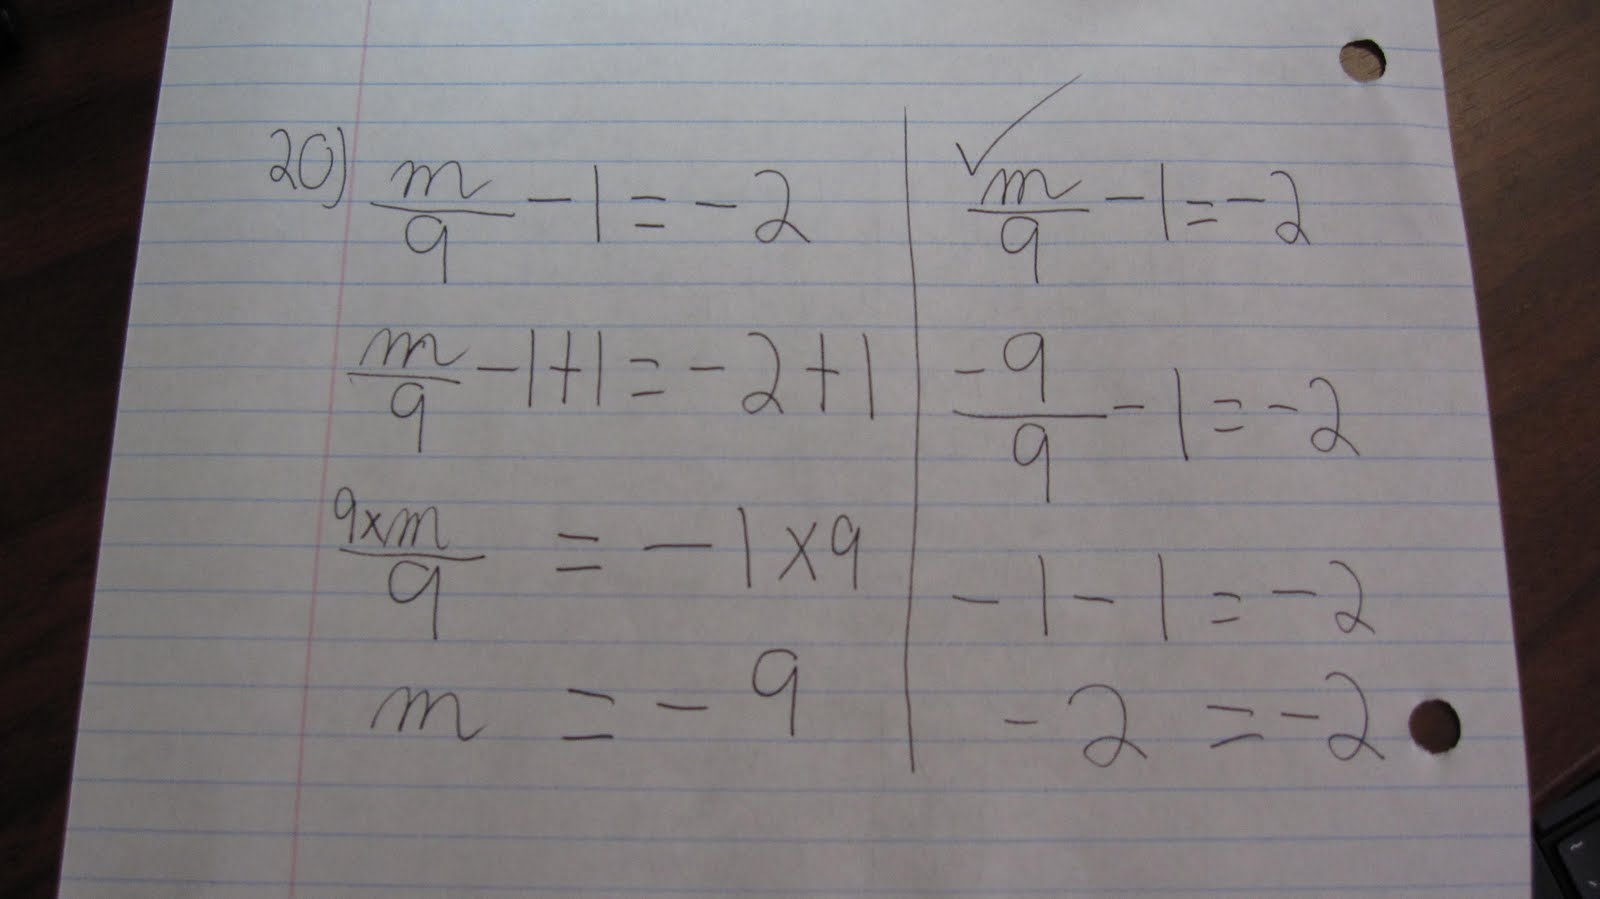 20) m/9 - 1 = -2
m/9 - 1 + 1 = -2 + 1
9xm/9 = -1x9
m = -9
✓ m/9 - 1 = -2
-9/9 - 1 = -2
-1 - 1 = -2
-2 = -2